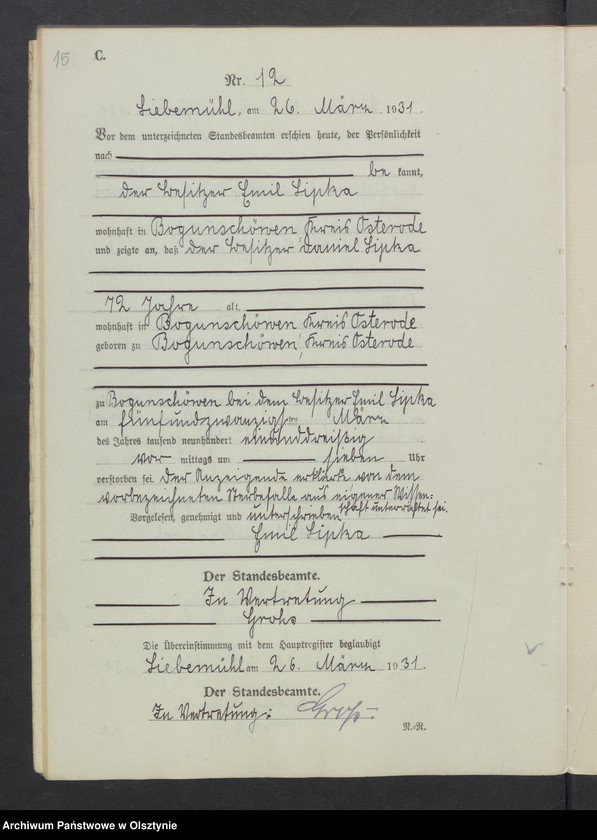 15 C.
Nr. 12
Liebemühl, am 26. März 1931.
Vor dem unterzeichneten Standesbeamten erschien heute, der Persönlichkeit
nach
be kannt,
der Besitzer Emil Lipka
wohnhaft in Bogunschöwen, Kreis Osterode
und zeigte an, daß der Besitzer Daniel Lipka
72 Jahre alt,
wohnhaft in Bogunschöwen Kreis Osterode
geboren zu Bogunschöwen, Kreis Osterode
zu Bogunschöwen bei dem Besitzer Emil Lipka
am fünfundzwanzigsten März
des Jahres tausend neunhundert einunddreißig
vor mittags um sieben Uhr
verstorben sei. Der Anzeigende erklärte von dem
vorbezeichneten Sterbefalle aus eigener Wissen=
schaft unterrichtet sei.
Vorgelesen, genehmigt und unterschrieben
Emil Lipka
Der Standesbeamte.
In Vertretung
Der Übereinstimmung mit dem Hauptregister beglaubigt
Liebemühl am 26. März 1931.
Der Standesbeamte.
In Vertretung:
N.=R.
Archiwum Państwowe w Olsztynie